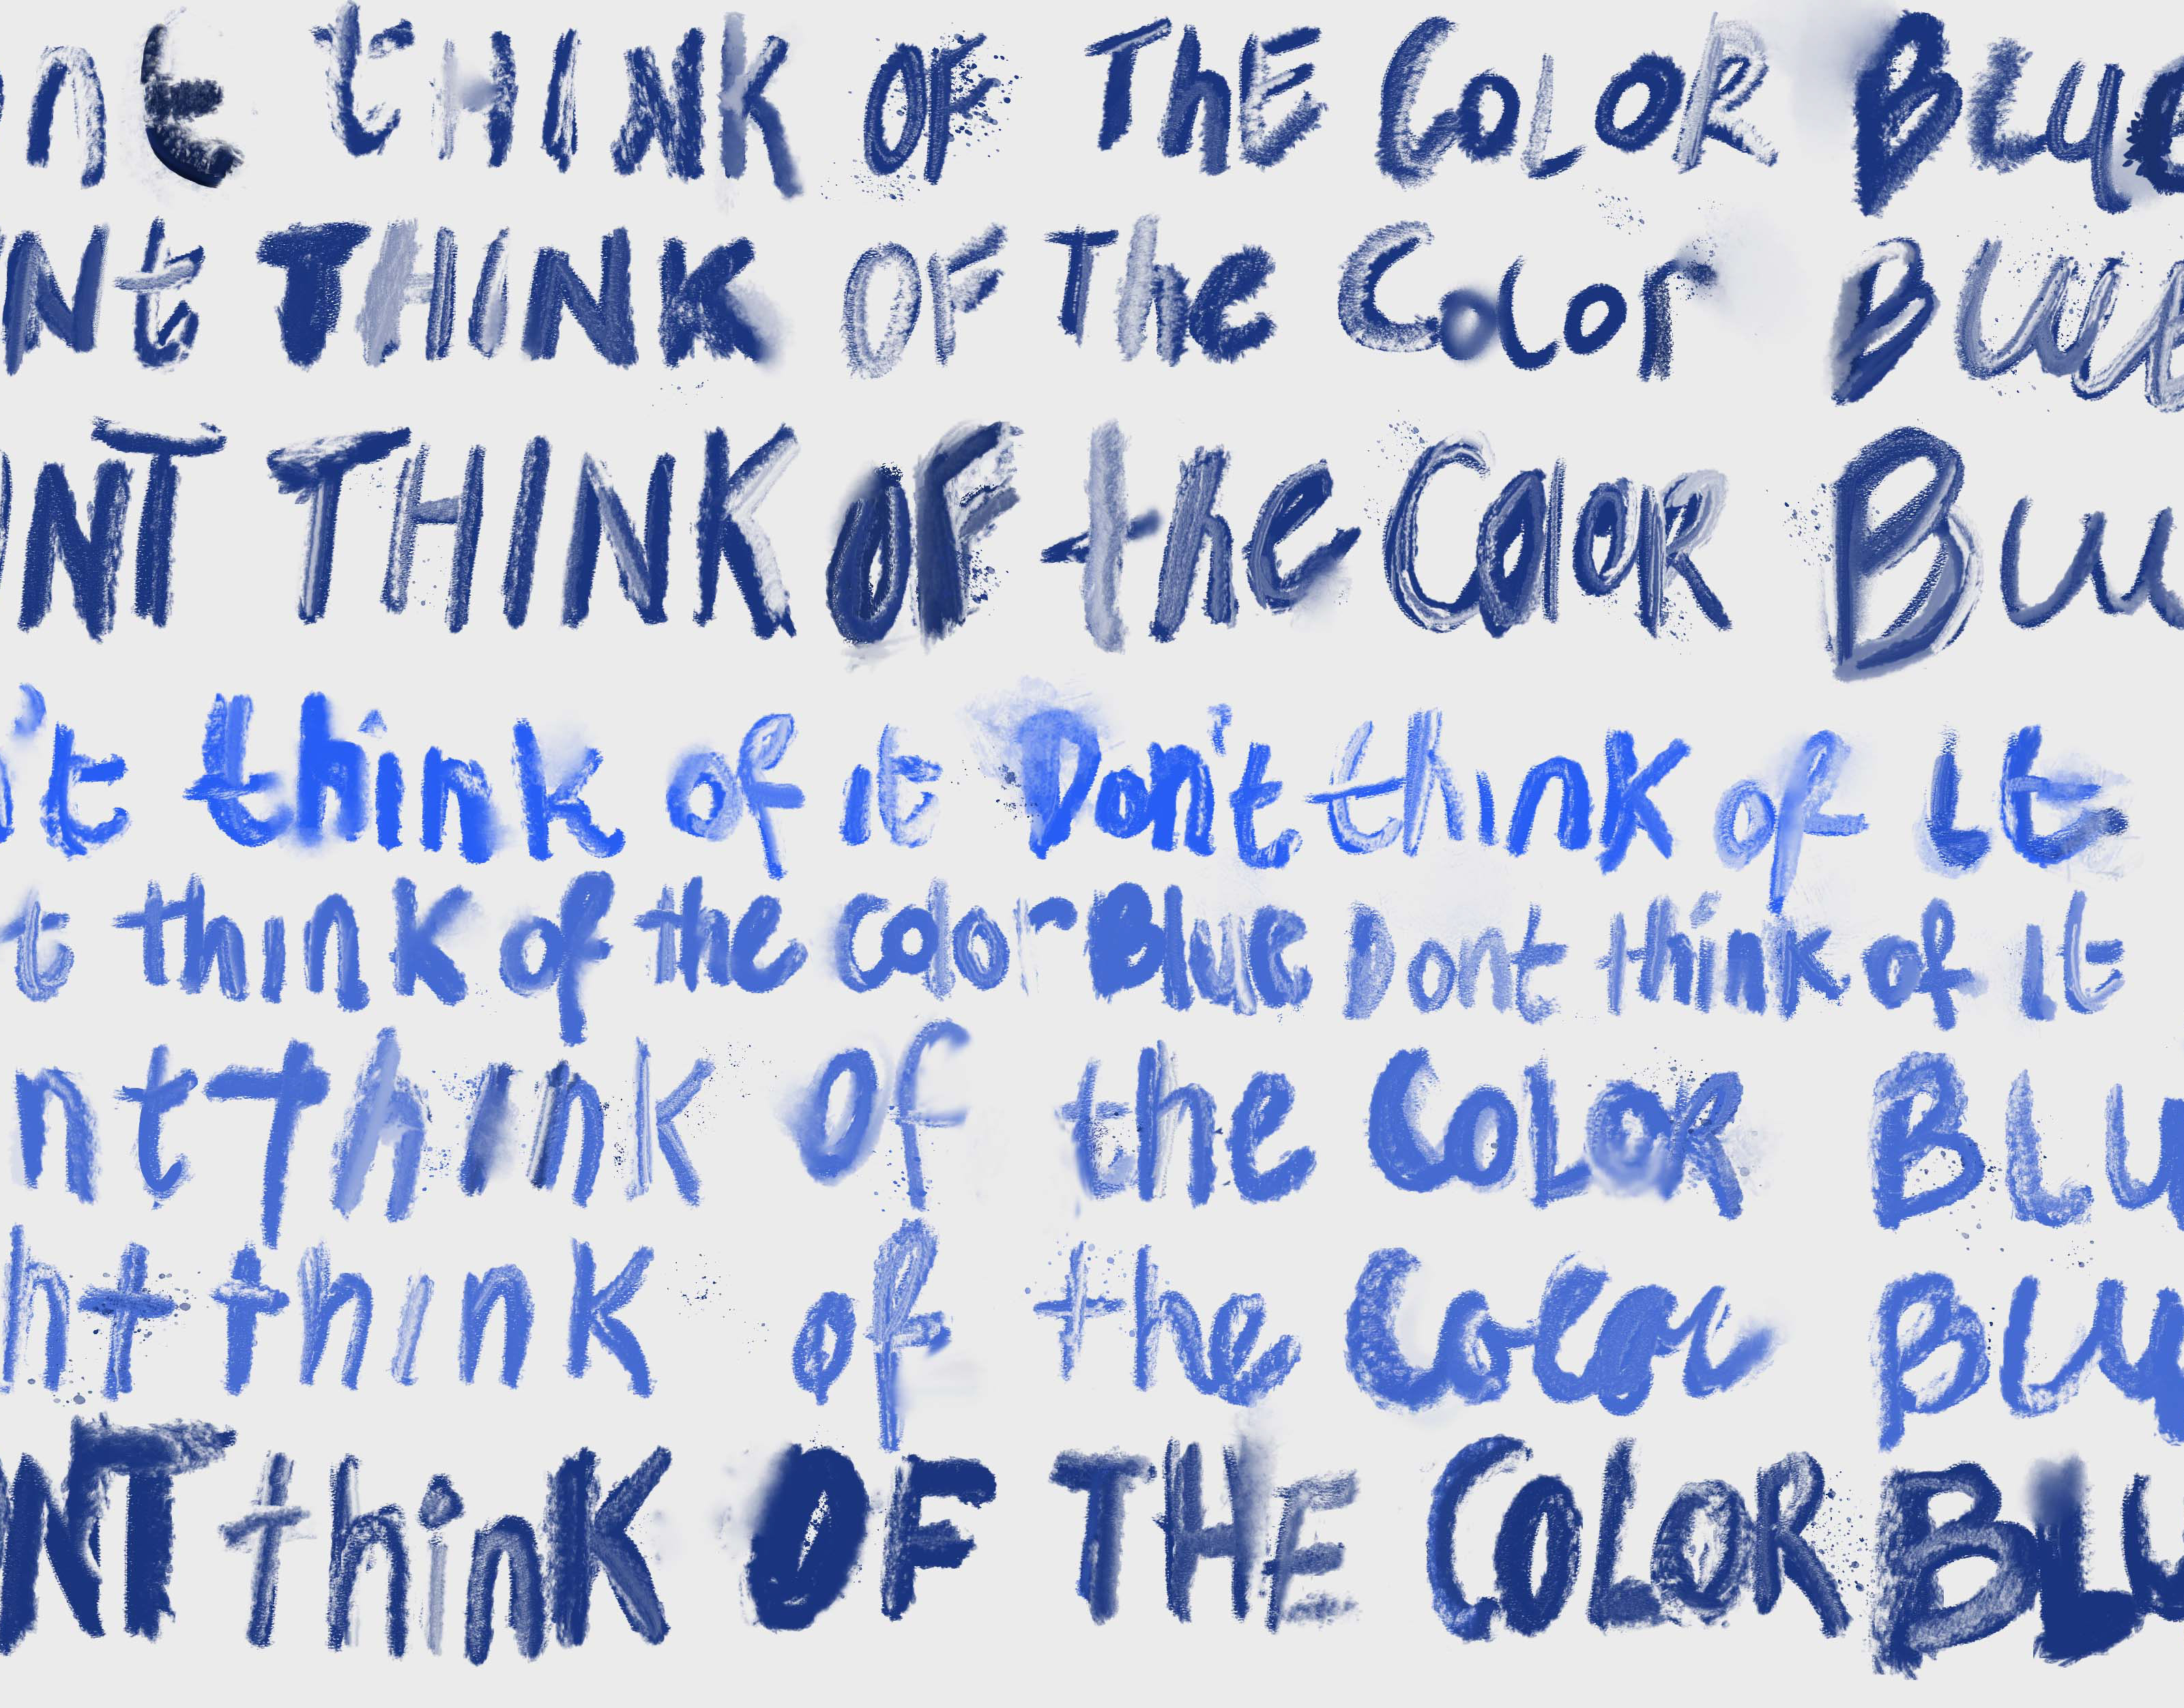 nt tHINK OF ThE COLOR BLUE
Nt THINK OF The Color BLUE
NT THINK OF the COlOR Blu
't think of it Don't think of it
t think of the color Blue Dont think of it
nt think Of the COLOR BLU
nt think of the Color BLU
NT think OF THE COLOR BLU